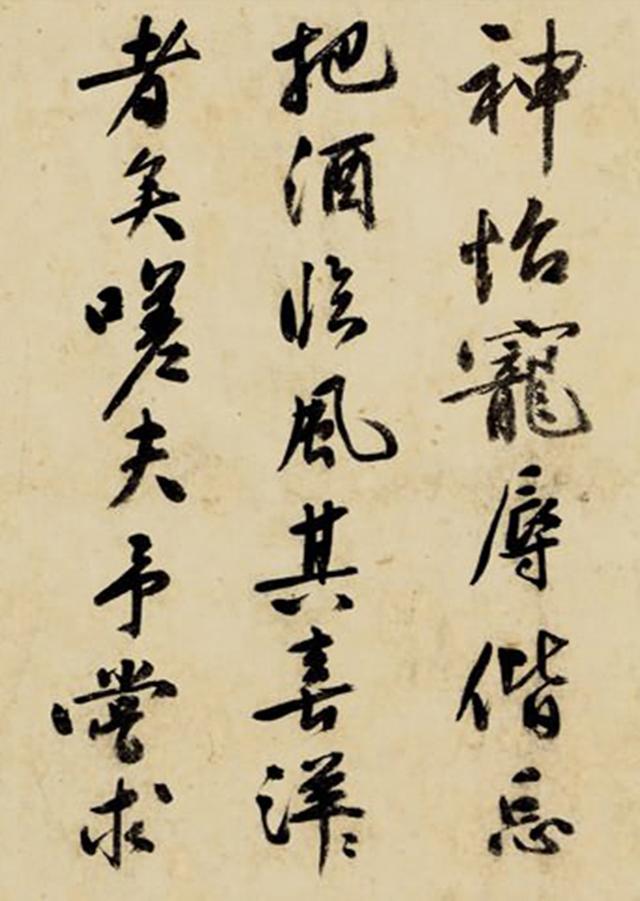 神怡寵辱偕忘
把酒臨風其喜洋〻
者矣嗟夫予嘗求